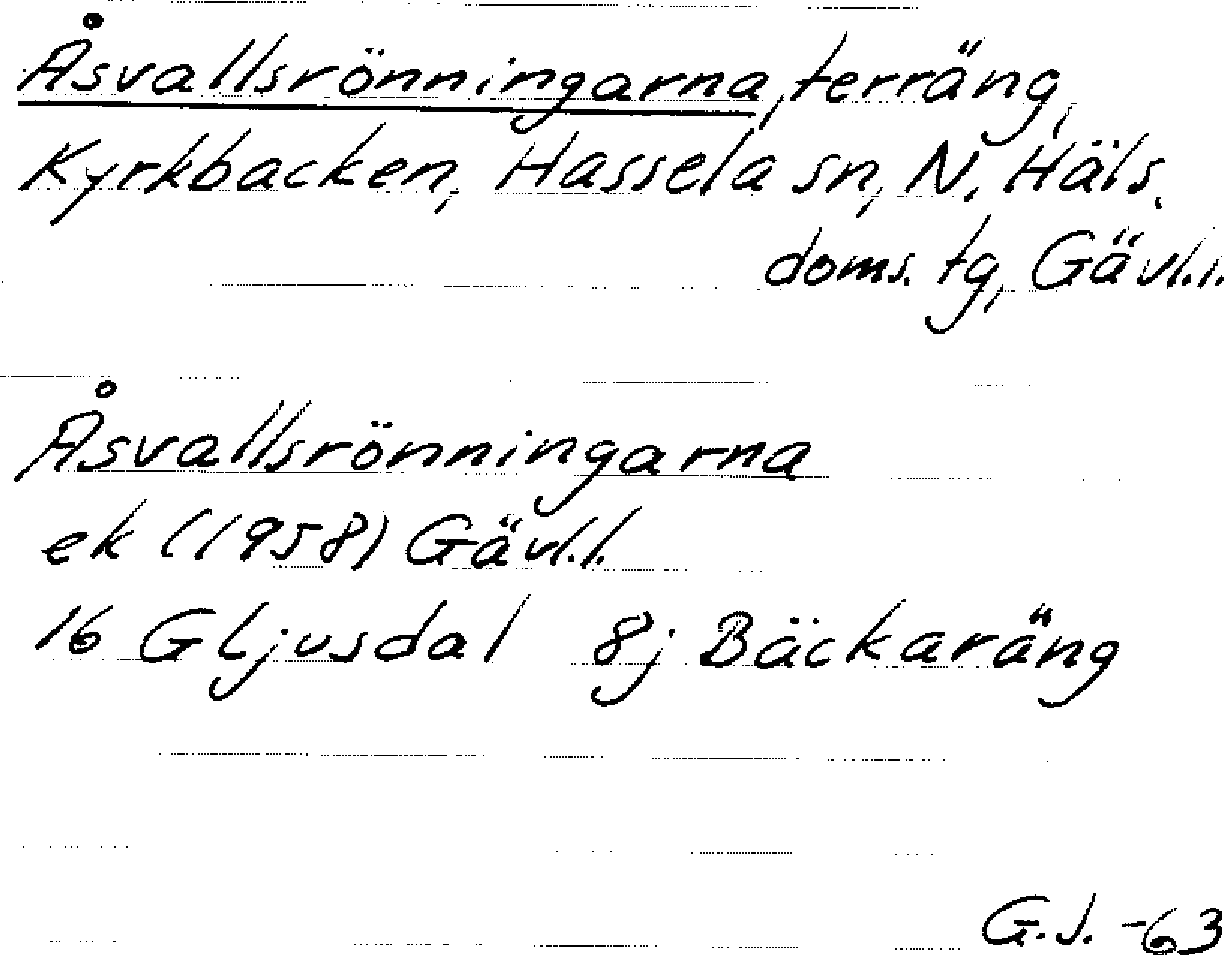 Åsvallsrönningarna, terräng,
Kyrkbacken, Hassela sn, N. Häls.
doms. tg, Gävl.l.
Åsvallsrönningarna
ek (1958) Gävl.l.
16 G Ljusdal 8j Bäckaräng
G.J. -63